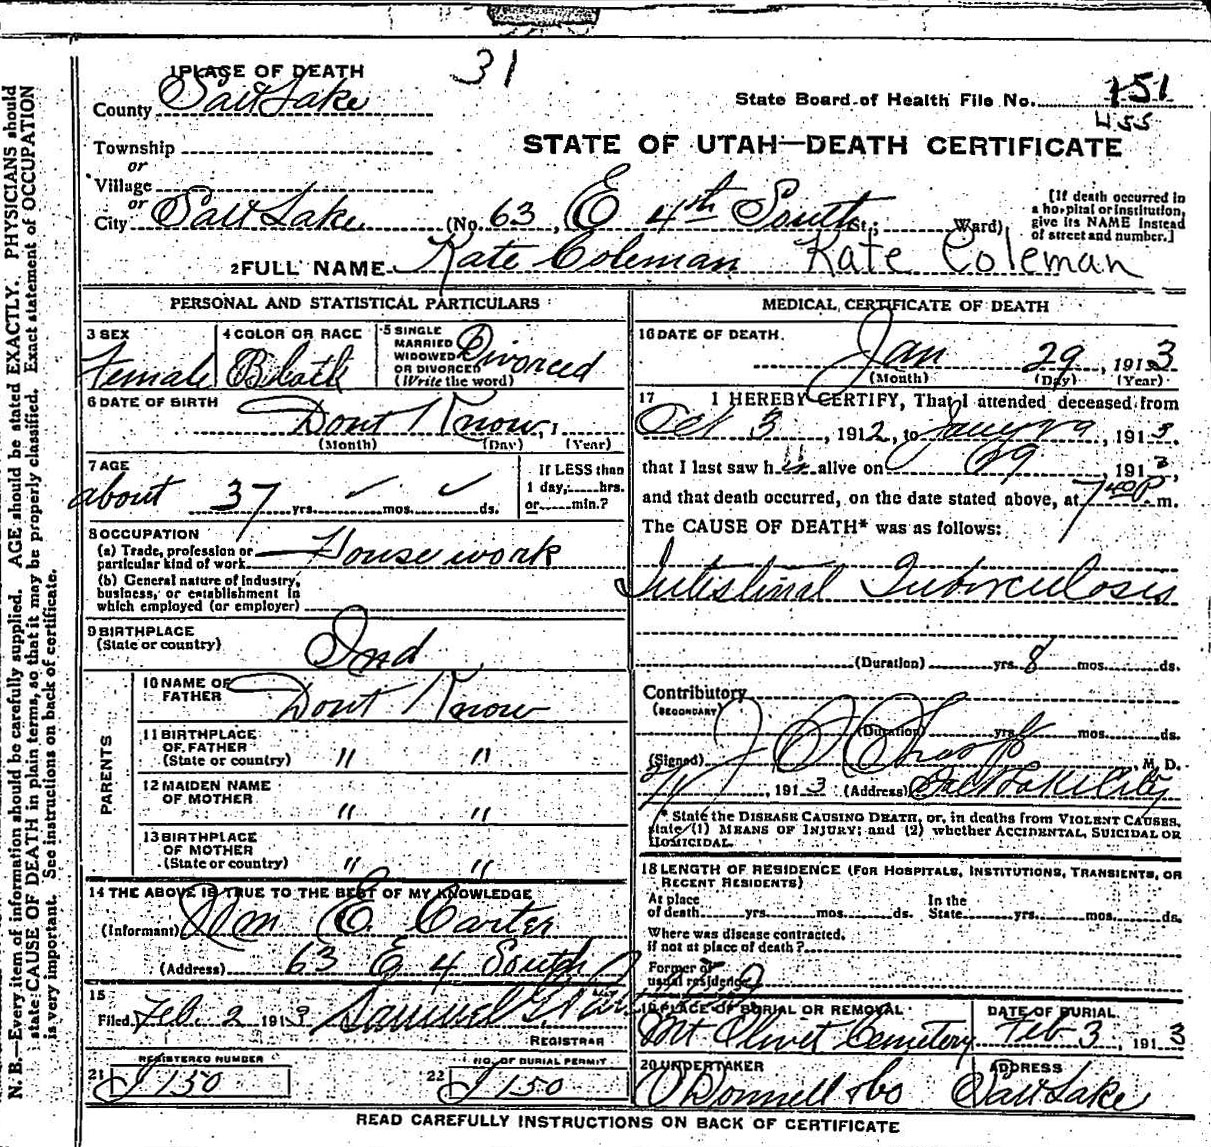 31
1 PLACE OF DEATH
County Salt Lake
State Board of Health File No. 151
455
Township
or
STATE OF UTAH—DEATH CERTIFICATE
Village
or
City Salt Lake (No. 63, E 4th South St.; Ward)
[If death occurred in
a hospital or institution,
give its NAME instead
of street and number.]
2 FULL NAME Kate Coleman Kate Coleman
PERSONAL AND STATISTICAL PARTICULARS
3 SEX
Female
4 COLOR OR RACE
Black
5 SINGLE
MARRIED
WIDOWED
OR DIVORCED
(Write the word)
Divorced
6 DATE OF BIRTH
Dont Know, 1
(Month) (Day) (Year)
7 AGE
about 37 yrs. mos. ds.
If LESS than
1 day, hrs.
or min.?
8 OCCUPATION
(a) Trade, profession or
particular kind of work House work
(b) General nature of industry,
business, or establishment in
which employed (or employer)
9 BIRTHPLACE
(State or country)
Ind
PARENTS
10 NAME OF
FATHER
Dont Know
11 BIRTHPLACE
OF FATHER
(State or country) " "
12 MAIDEN NAME
OF MOTHER
" "
13 BIRTHPLACE
OF MOTHER
(State or country) " "
14 THE ABOVE IS TRUE TO THE BEST OF MY KNOWLEDGE
(Informant) Wm E. Carter
(Address) 63 E 4 South
15
Filed Feb. 2 1913 Samuel G.
REGISTRAR
REGISTERED NUMBER
21 J 150
NO. OF BURIAL PERMIT
22 J 150
MEDICAL CERTIFICATE OF DEATH
16 DATE OF DEATH
Jan 29, 1913
(Month) (Day) (Year)
17 I HEREBY CERTIFY, That I attended deceased from
Oct 3, 1912, to Jany 29, 1913,
that I last saw h alive on 29, 1913,
and that death occurred, on the date stated above, at 7 40 P. m.
The CAUSE OF DEATH* was as follows:
Intestinal Tuberculosis
(Duration) yrs. 8 mos. ds.
Contributory
(SECONDARY)
(Duration) yrs. mos. ds.
(Signed) , M. D.
, 1913 (Address) Salt Lake City
* State the DISEASE CAUSING DEATH, or, in deaths from VIOLENT CAUSES,
state (1) MEANS OF INJURY; and (2) whether ACCIDENTAL, SUICIDAL OR
HOMICIDAL.
18 LENGTH OF RESIDENCE (FOR HOSPITALS, INSTITUTIONS, TRANSIENTS, OR
RECENT RESIDENTS)
At place
of death yrs. mos. ds.
In the
State yrs. mos. ds.
Where was disease contracted,
if not at place of death?
Former or
usual residence
19 PLACE OF BURIAL OR REMOVAL
Mt Olivet Cemetery
DATE OF BURIAL
Feb 3, 1913
20 UNDERTAKER
O'Donnell & Co
ADDRESS
Salt Lake
READ CAREFULLY INSTRUCTIONS ON BACK OF CERTIFICATE
N. B.—Every item of information should be carefully supplied. AGE should be stated EXACTLY. PHYSICIANS should
state CAUSE OF DEATH in plain terms, so that it may be properly classified. Exact statement of OCCUPATION
is very important. See instructions on back of certificate.